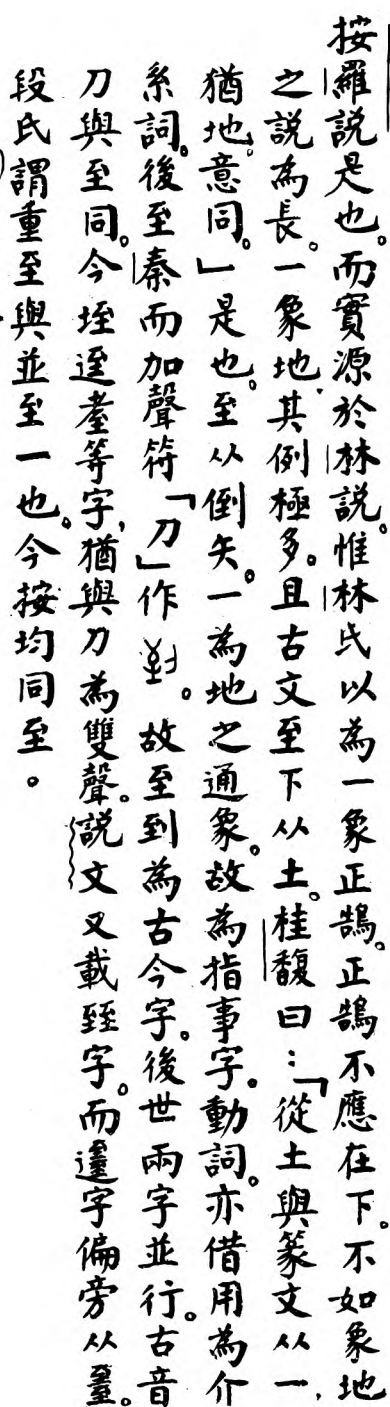 按羅說是也。而實源於林說。惟林氏以為一象正鵠。正鵠不應在下。不如象地
之說為長。一象地,其例極多。且古文至下从土。桂馥曰：「從土與篆文从一,
猶地。意同。」是也。至从倒矢。一為地之通象。故為指事字。動詞。亦借用為介
系詞。後至秦而加聲符「刀」作。故至到為古今字。後世兩字並行。古音
刀與至同。今垤逕耋等字,猶與刀為雙聲。說文又載臸字。而邅字偏旁从
段氏謂重至與並至一也。今按均同至。